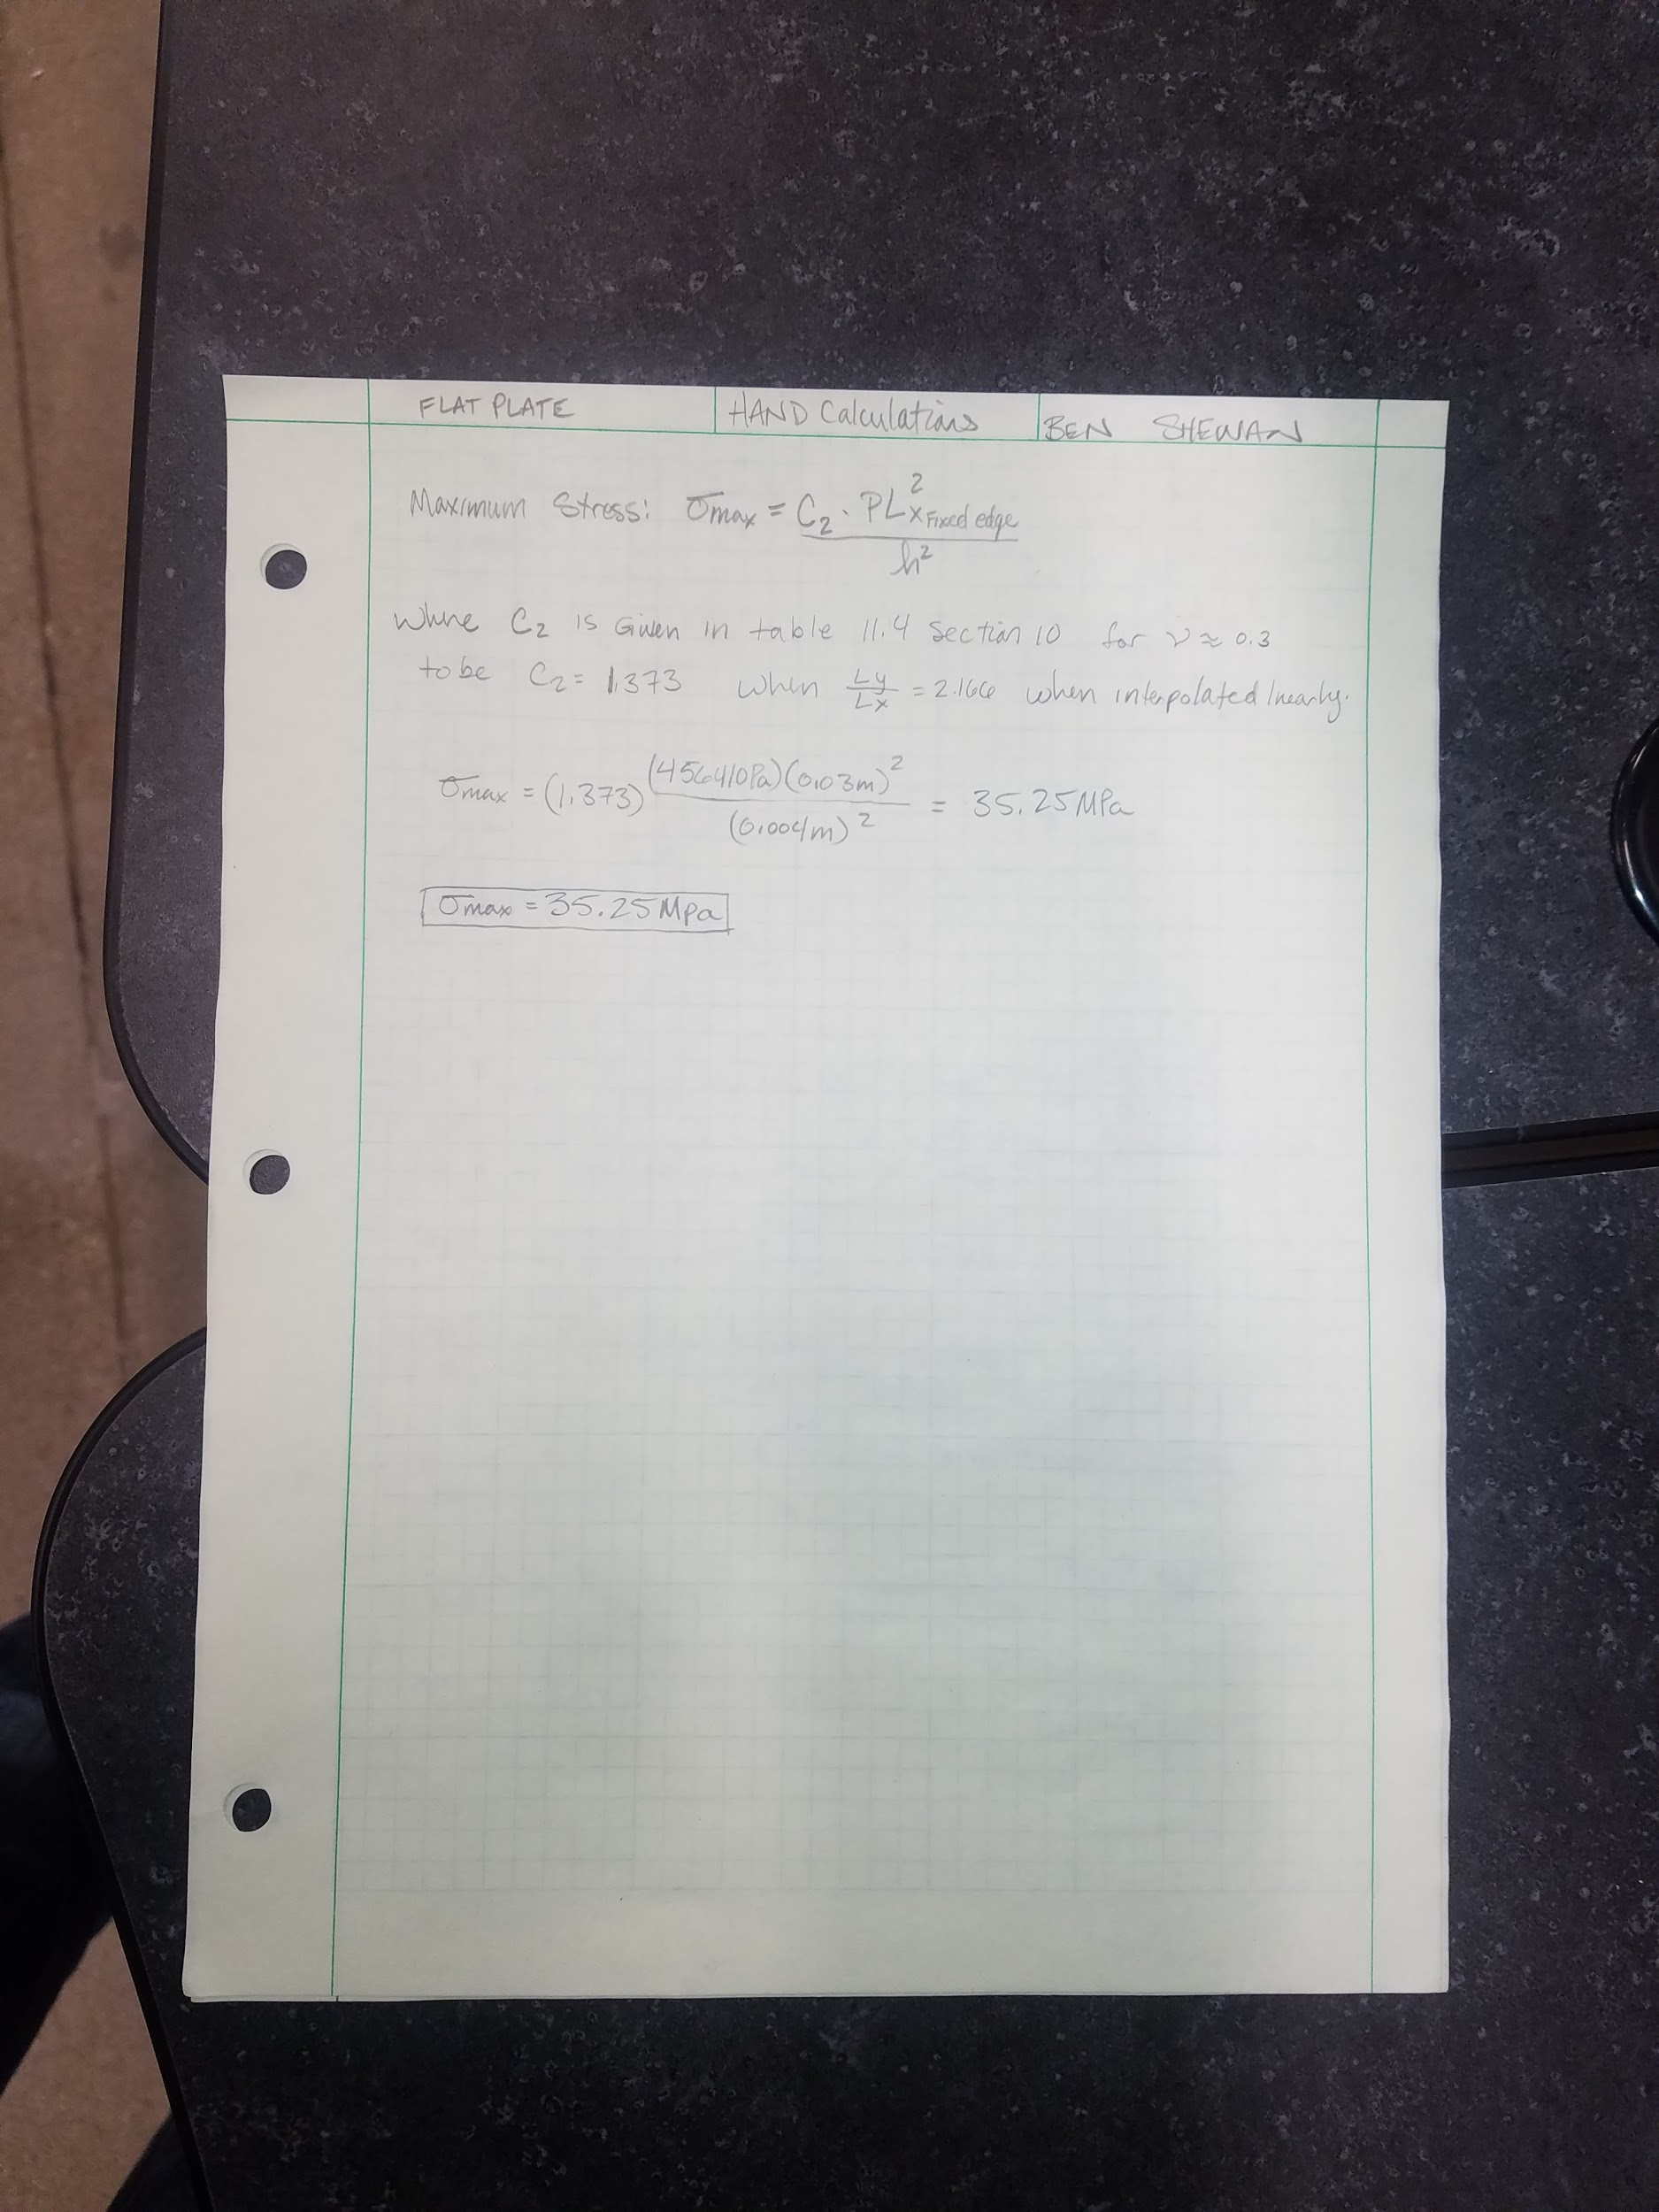 FLAT PLATE HAND Calculations BEN SHEWAN
Maximum Stress: σmax = C₂ · PLₓ² Fixed edge
h²
Where C₂ is Given in table 11.4 Section 10 for ν ≈ 0.3
to be C₂ = 1.373 when Ly/Lx = 2.166 when interpolated linearly.
σmax = (1.373) (456410Pa)(0.03m)² / (0.004m)² = 35.25MPa
σmax = 35.25MPa